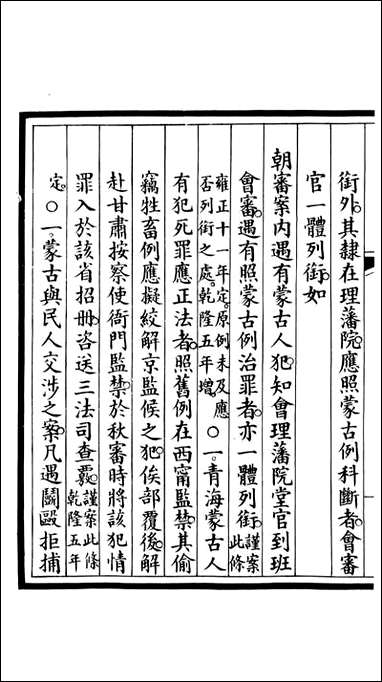 銜外。其隸在理藩院。應照蒙古例科斷者。會審
官一體列銜。如
朝審案内遇有蒙古人犯。知會理藩院堂官到班
會審。遇有照蒙古例治罪者。亦一體列銜。謹案此條
雍正十一年定。原例未及應否列銜之處。乾隆五年增。○一。青海蒙古人
有犯死罪應正法者。照舊例在西甯監禁。其偷
竊牲畜例應擬絞解京監候之犯。俟部覆後。解
赴甘肅按察使衙門監禁。於秋審時將該犯情
罪入於該省招冊。咨送三法司查覈。謹案此條乾隆五年
定。○一。蒙古與民人交涉之案。凡遇鬬毆拒捕